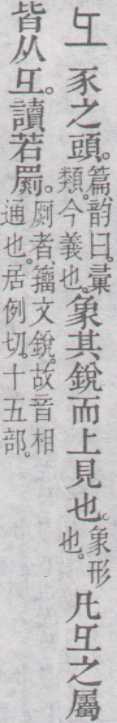 彑 豕之頭。篇韵曰。彙類。今義也。象其銳而上見也。象形也。凡彑之屬
皆从彑。讀若罽。㓹者籒文銳。故音相通也。居例切。十五部。